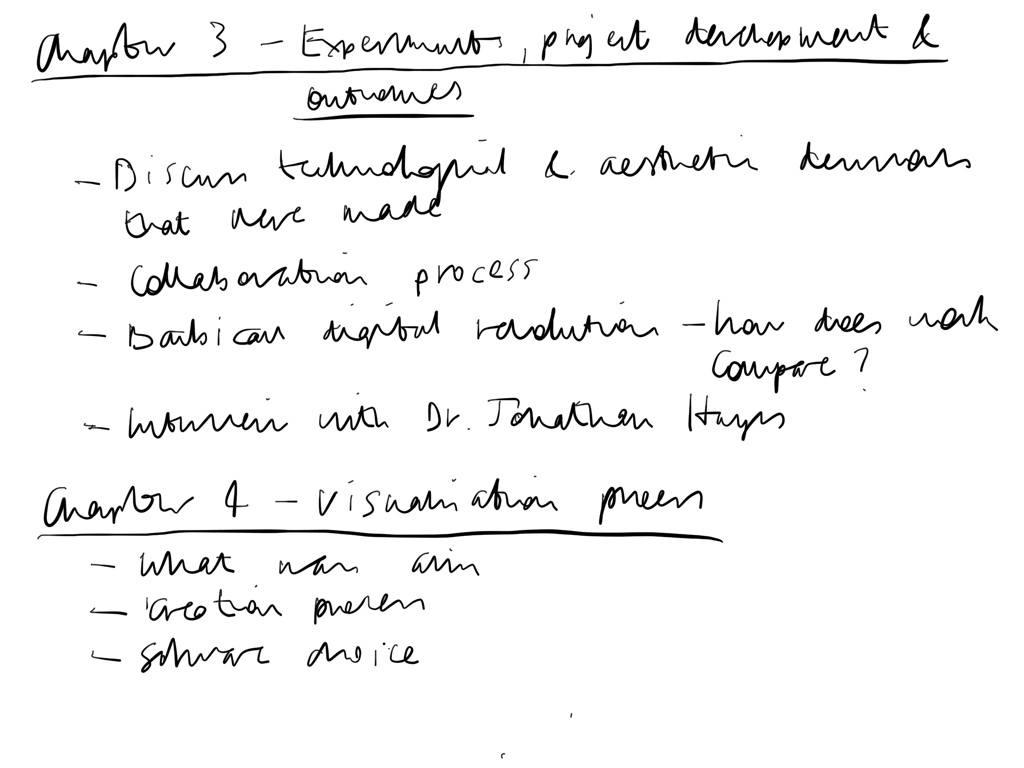 Chapter 3 - Experiments, project development &
outcomes
- Discuss technological & aesthetic decisions
that were made
- Collaboration process
- Barbican digital revolution - how does work
compare?
- Interview with Dr. Jonathan
Chapter 4 - Visualisation process
- What was aim
- Creation process
- Software choice